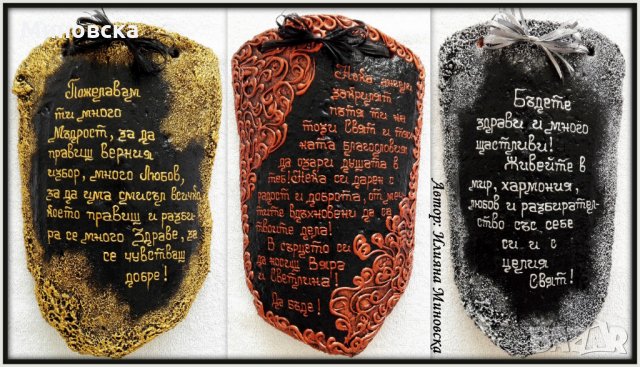 Миновска
Пожелавам
ти много
Мъдрост, за да
правиш верния
избор, много Любов,
за да има смисъл всичко,
което правиш и разби-
ра се много Здраве, за
се чувстваш
добре!
Нека ангели
закрилят
пътя ти на
този Свят и тях-
ната благословия
да озари душата в
теб! Нека си дарен с
радост и доброта, от меч-
тите вдъхновени да са
твоите дела!
В сърцето си
да носиш Вяра
и Светлина!
Да бъде!
Автор: Илияна Миновска
Бъдете
здрави и много
щастливи!
Живейте в
мир, хармония,
любов и разбирател-
ство със себе
си и с
целия
Свят!
BAZAR